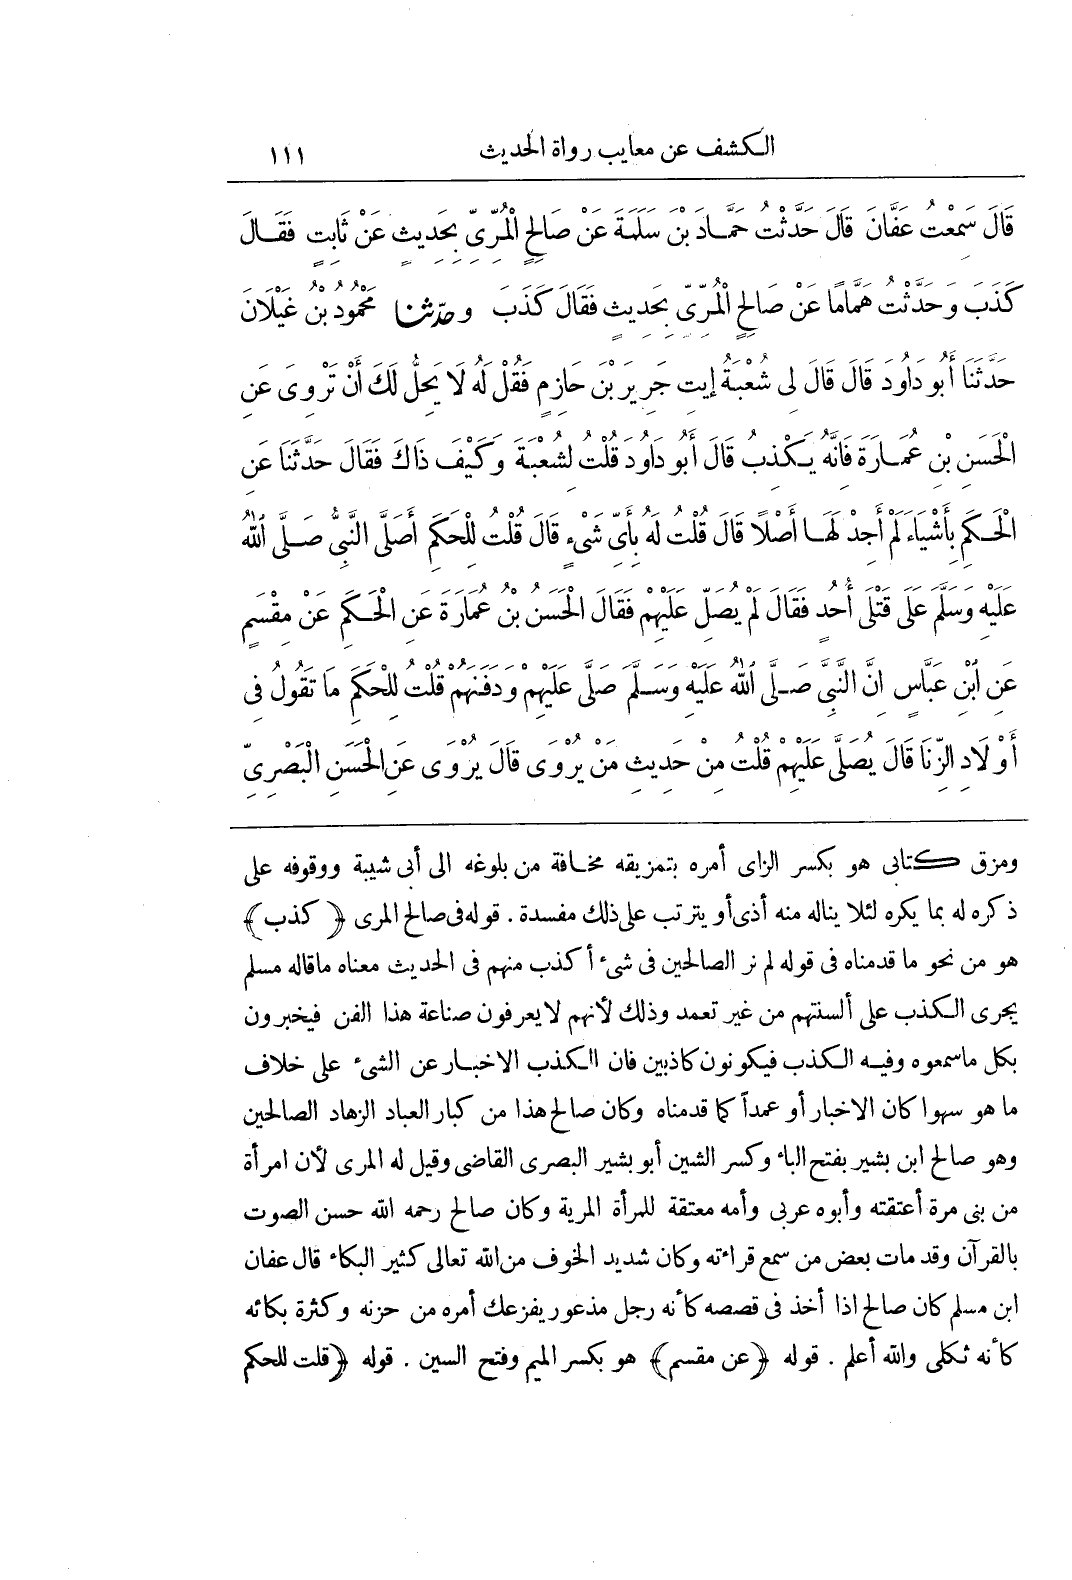 الكشف عن معايب رواة الحديث ١١١
قَالَ سَمِعْتُ عَفَّانَ قَالَ حَدَّثْتُ حَمَّادَ بْنَ سَلَمَةَ عَنْ صَالِحٍ الْمُرِّيِّ بِحَدِيثٍ عَنْ ثَابِتٍ فَقَالَ
كَذَبَ وَحَدَّثْتُ هَمَّامًا عَنْ صَالِحٍ الْمُرِّيِّ بِحَدِيثٍ فَقَالَ كَذَبَ وحَدَّثَنَا مَحْمُودُ بْنُ غَيْلَانَ
حَدَّثَنَا أَبُو دَاوُدَ قَالَ قَالَ لِى شُعْبَةُ إيتِ جَرِيرَ بْنَ حَازِمٍ فَقُلْ لَهُ لَا يَحِلُّ لَكَ أَنْ تَرْوِىَ عَنِ
الْحَسَنِ بْنِ عُمَارَةَ فَانَّهُ يَكْذِبُ قَالَ أَبُو دَاوُدَ قُلْتُ لِشُعْبَةَ وَكَيْفَ ذَاكَ فَقَالَ حَدَّثَنَا عَنِ
الْحَكَمِ بِأَشْيَاءَ لَمْ أَجِدْ لَهَا أَصْلًا قَالَ قُلْتُ لَهُ بِأَىِّ شَىْءٍ قَالَ قُلْتُ لِلْحَكَمِ أَصَلَّى النَّبِىُّ صَلَّى اللهُ
عَلَيْهِ وَسَلَّمَ عَلَى قَتْلَى أُحُدٍ فَقَالَ لَمْ يُصَلِّ عَلَيْهِمْ فَقَالَ الْحَسَنُ بْنُ عُمَارَةَ عَنِ الْحَكَمِ عَنْ مِقْسَمٍ
عَنِ ابْنِ عَبَّاسٍ انَّ النَّبِىَّ صَلَّى اللهُ عَلَيْهِ وَسَلَّمَ صَلَّى عَلَيْهِمْ وَدَفَنَهُمْ قُلْتُ لِلْحَكَمِ مَا تَقُولُ فِى
أَوْلَادِ الزِّنَا قَالَ يُصَلَّى عَلَيْهِمْ قُلْتُ مِنْ حَدِيثِ مَنْ يُرْوَى قَالَ يُرْوَى عَنِ الْحَسَنِ الْبَصْرِىِّ
ومزق كتابى هو بكسر الزاى أمره بتمزيقه مخافة من بلوغه الى أبى شيبة ووقوفه على
ذكره له بما يكره لئلا يناله منه أذى أو يترتب على ذلك مفسدة . قوله فى صالح المرى ﴿كذب﴾
هو من نحو ما قدمناه فى قوله لم نر الصالحين فى شىء أكذب منهم فى الحديث معناه ماقاله مسلم
يجرى الكذب على ألسنتهم من غير تعمد وذلك لأنهم لا يعرفون صناعة هذا الفن فيخبرون
بكل ماسمعوه وفيه الكذب فيكونون كاذبين فان الكذب الاخبار عن الشىء على خلاف
ما هو سهوا كان الاخبار أو عمداً كما قدمناه وكان صالح هذا من كبار العباد الزهاد الصالحين
وهو صالح ابن بشير بفتح الباء وكسر الشين أبو بشير البصرى القاضى وقيل له المرى لأن امرأة
من بنى مرة أعتقته وأبوه عربى وأمه معتقة للمرأة المرية وكان صالح رحمه الله حسن الصوت
بالقرآن وقد مات بعض من سمع قراءته وكان شديد الخوف من الله تعالى كثير البكاء قال عفان
ابن مسلم كان صالح اذا أخذ فى قصصه كأنه رجل مذعور يفزعك أمره من حزنه وكثرة بكائه
كأنه ثكلى والله أعلم . قوله ﴿عن مقسم﴾ هو بكسر الميم وفتح السين . قوله ﴿قلت للحكم